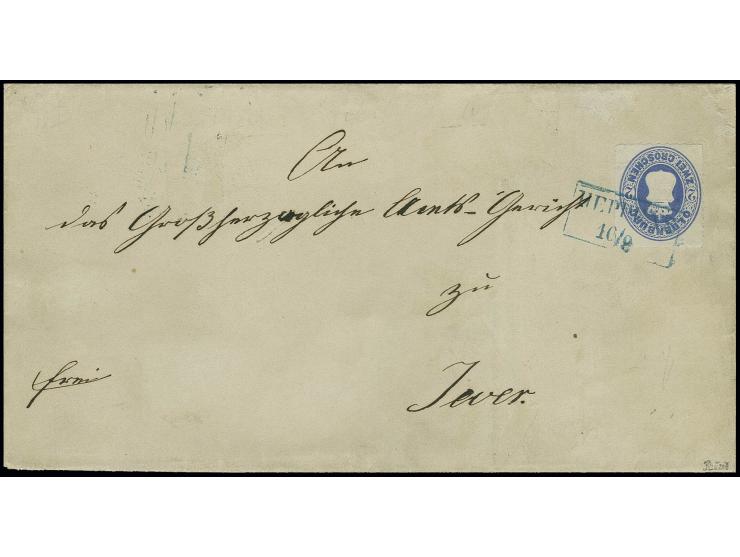 An
das Großherzogliche Amts-Gericht
zu
Jever.
frei
OLDENBURG
ZWEI GROSCHEN
2
10/8